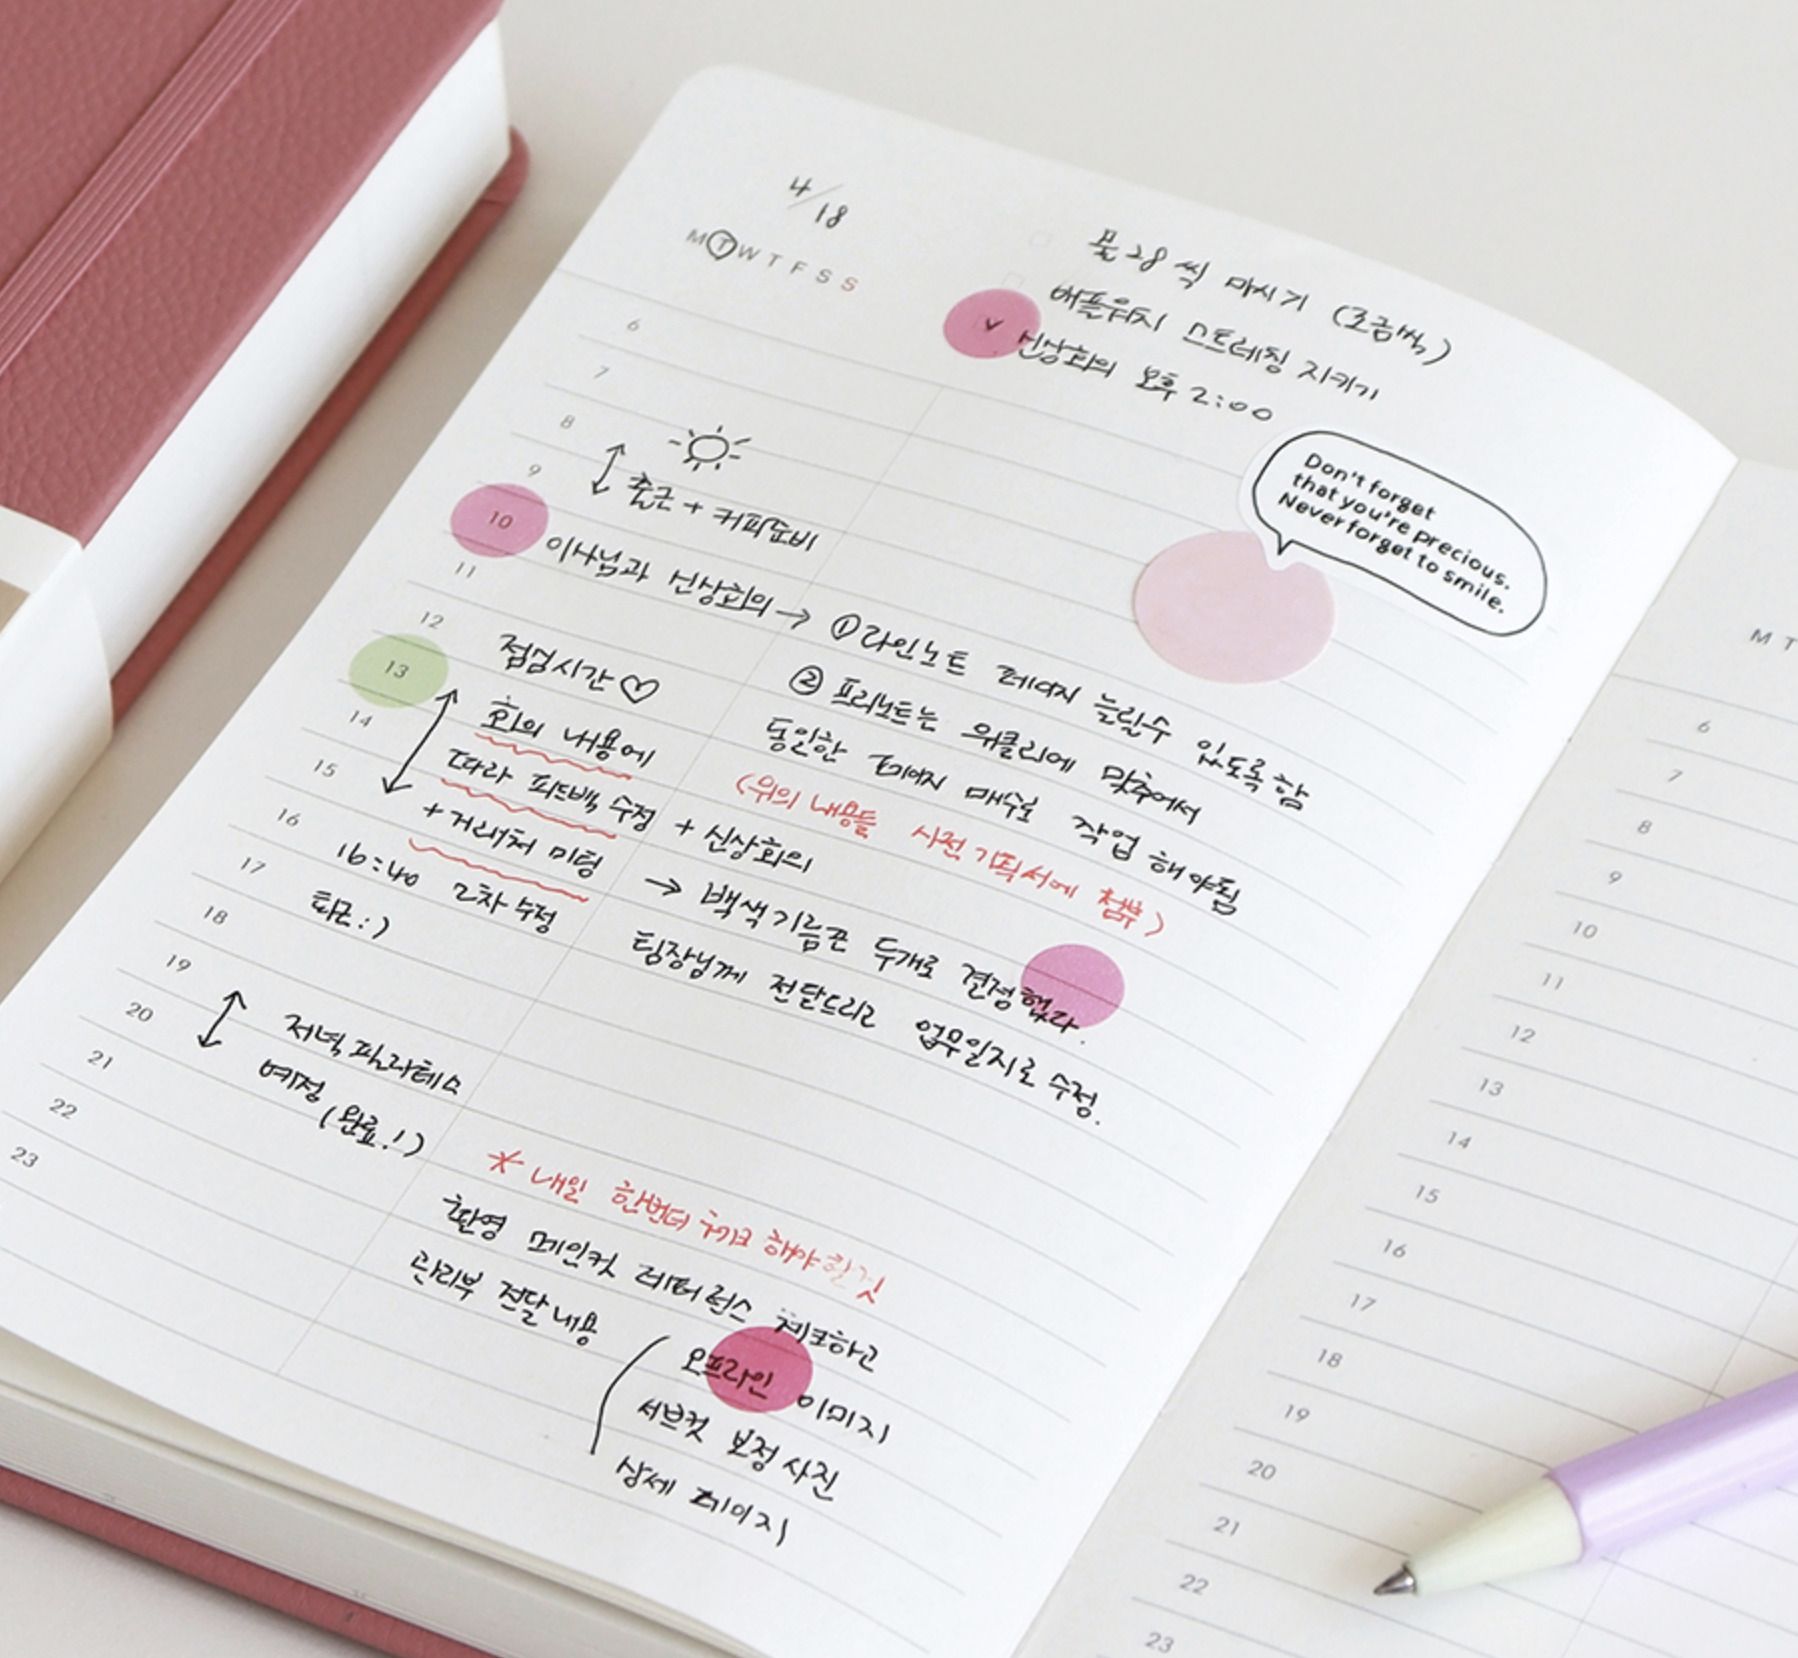 4/18
M T W T F S S
물 2ℓ씩 마시기 (조금씩)
스트레칭 지키기
신상회의 오후 2:00
Don't forget
that you're precious.
Never forget to smile.
6
7
8
9
출근 + 커피준비
10
이사님과 신상회의 → ① 라인노트 페이지 늘릴수 있도록 함
11
② 프리노트는 위클리에 맞춰서
12
점검시간 ♡
동일한 페이지 매수로 작업 해야됨
13
회의 내용에
(위의 내용들 사전 기획서에 첨부)
14
따라 피드백 수정 + 신상회의
15
+ 거래처 미팅 → 백색 기름끈 두개로 결정했다.
16
16:40 2차 수정
팀장님께 전달드리고 업무일지로 수정.
17
퇴근 :)
18
19
20
저녁 필라테스
21
예정 (완료!)
22
23
* 내일 한번더 체크 해야할 것
촬영 메인컷 레퍼런스 체크하고
관리부 전달내용
오프라인 이미지
서브컷 보정 사진
상세 페이지
M T
6
7
8
9
10
11
12
13
14
15
16
17
18
19
20
21
22
23